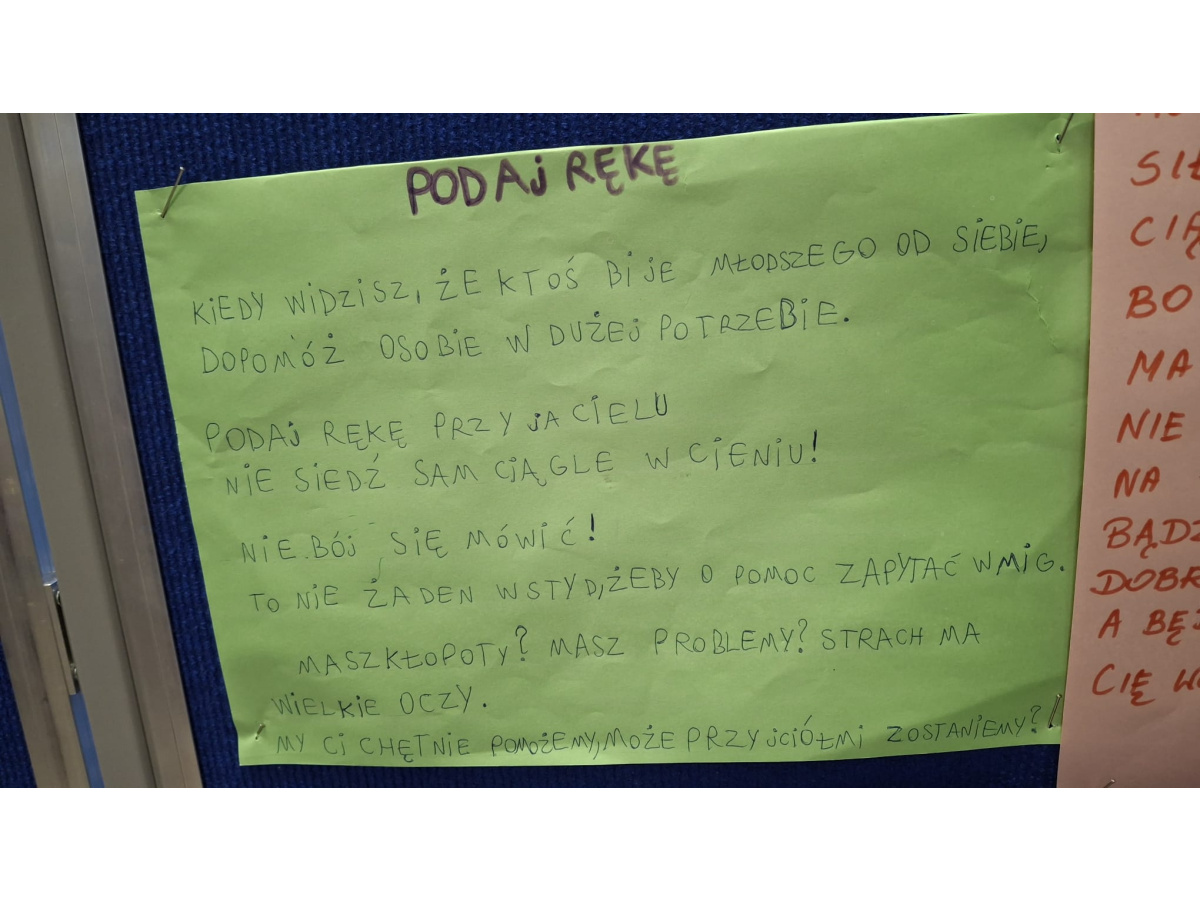 PODAJ RĘKĘ
KIEDY WIDZISZ, ŻE KTOŚ BIJE MŁODSZEGO OD SIEBIE,
DOPOMÓŻ OSOBIE W DUŻEJ POTRZEBIE.
PODAJ RĘKĘ PRZYJACIELU
NIE SIEDŹ SAM CIĄGLE W CIENIU!
NIE BÓJ SIĘ MÓWIĆ!
TO NIE ŻADEN WSTYD, ŻEBY O POMOC ZAPYTAĆ W MIG.
MASZ KŁOPOTY? MASZ PROBLEMY? STRACH MA
WIELKIE OCZY.
MY CI CHĘTNIE POMOŻEMY, MOŻE PRZYJCIÓŁMI ZOSTANIEMY?
BO
MA
NIE
NA
A
CIĘ